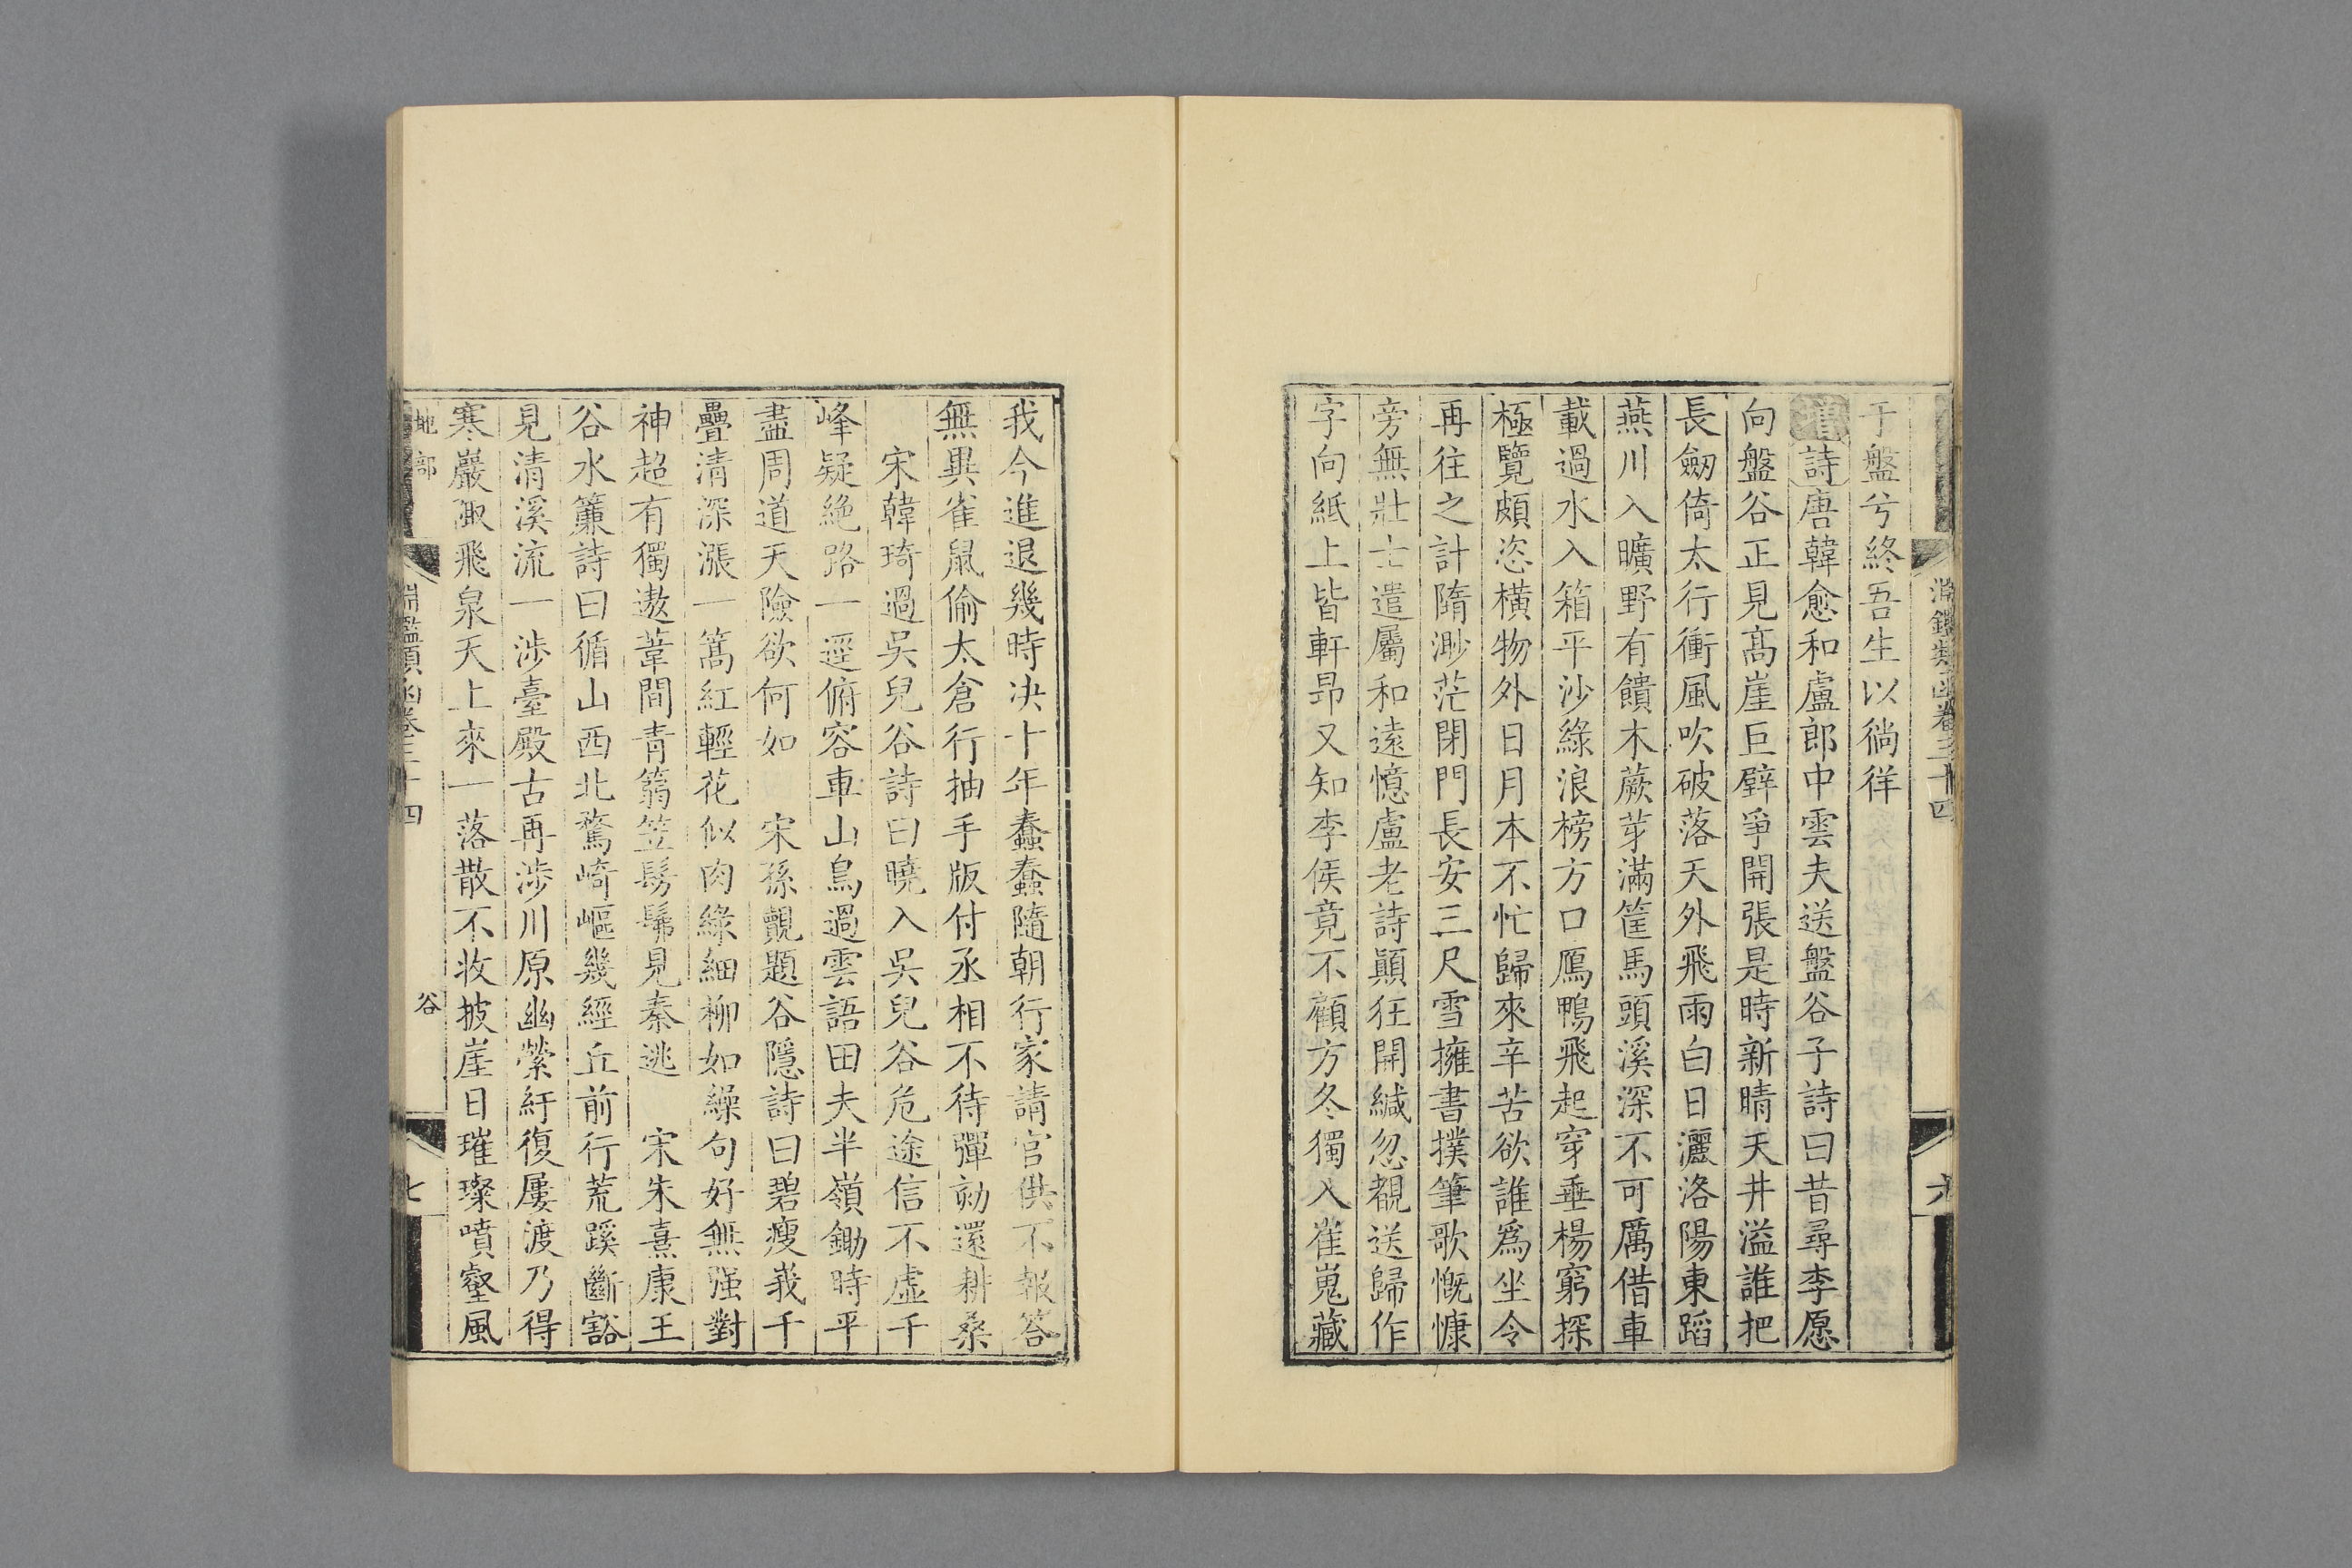 淵鑑類函卷三十四
六
于盤兮終吾生以徜徉
增詩唐韓愈和盧郎中雲夫送盤谷子詩曰昔尋李愿
向盤谷正見髙崖巨壁爭開張是時新晴天井溢誰把
長劒倚太行衝風吹破落天外飛雨白日灑洛陽東蹈
燕川入曠野有饋木蕨芽滿筐馬頭溪深不可厲借車
載過水入箱平沙綠浪榜方口鴈鴨飛起穿垂楊窮探
極覽頗恣橫物外日月本不忙歸來辛苦欲誰爲坐令
再往之計隋渺茫閉門長安三尺雪擁書撲筆歌慨慷
旁無壯士遣屬和遠憶盧老詩顚狂開緘忽覩送歸作
字向紙上皆軒昂又知李侯竟不顧方冬獨入崔嵬藏
我今進退幾時决十年蠢蠢隨朝行家請官供不報答
無異雀鼠偷太倉行抽手版付丞相不待彈劾還耕桑
宋韓琦過吳兒谷詩曰曉入吳兒谷危途信不虛千
峰疑絶路一逕俯容車山鳥過雲語田夫半嶺鋤時平
盡周道天險欲何如　宋孫覿題谷隱詩曰碧瘦峩千
疊清深漲一篙紅輕花似肉綠細柳如繰句好無强對
神超有獨遨葦間青篛笠髣髴見秦逃　宋朱熹康王
谷水簾詩曰循山西北鶩崎嶇幾經丘前行荒蹊斷豁
見清溪流一涉臺殿古再涉川原幽縈紆復屢渡乃得
寒巖陬飛泉天上來一落散不收披崖日璀璨噴壑風
地部
淵鑑類函卷三十四
谷
七